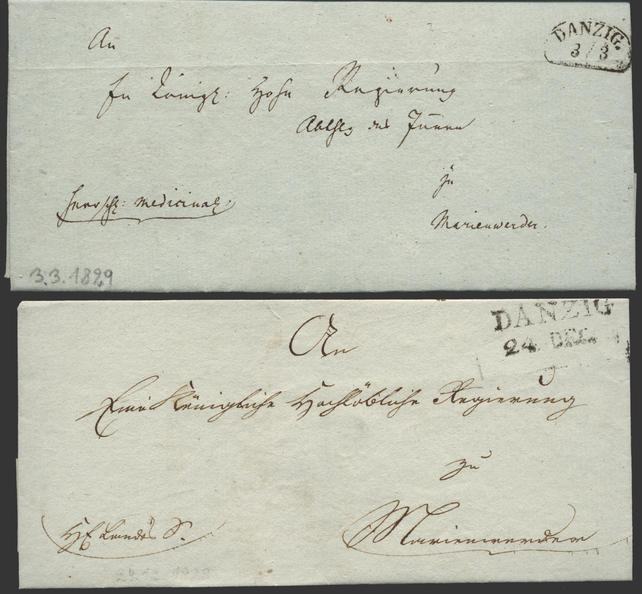 An
DANZIG.
3/3
Königl: Hohe Regierung
Abthlg des Innern
zu
Marienwerder.
Herrschl: Medicinal:
3.3.1829
DANZIG
24 DEC.
An
Eine Königliche Hochlöbliche Regierung
zu
Marienwerder
S.